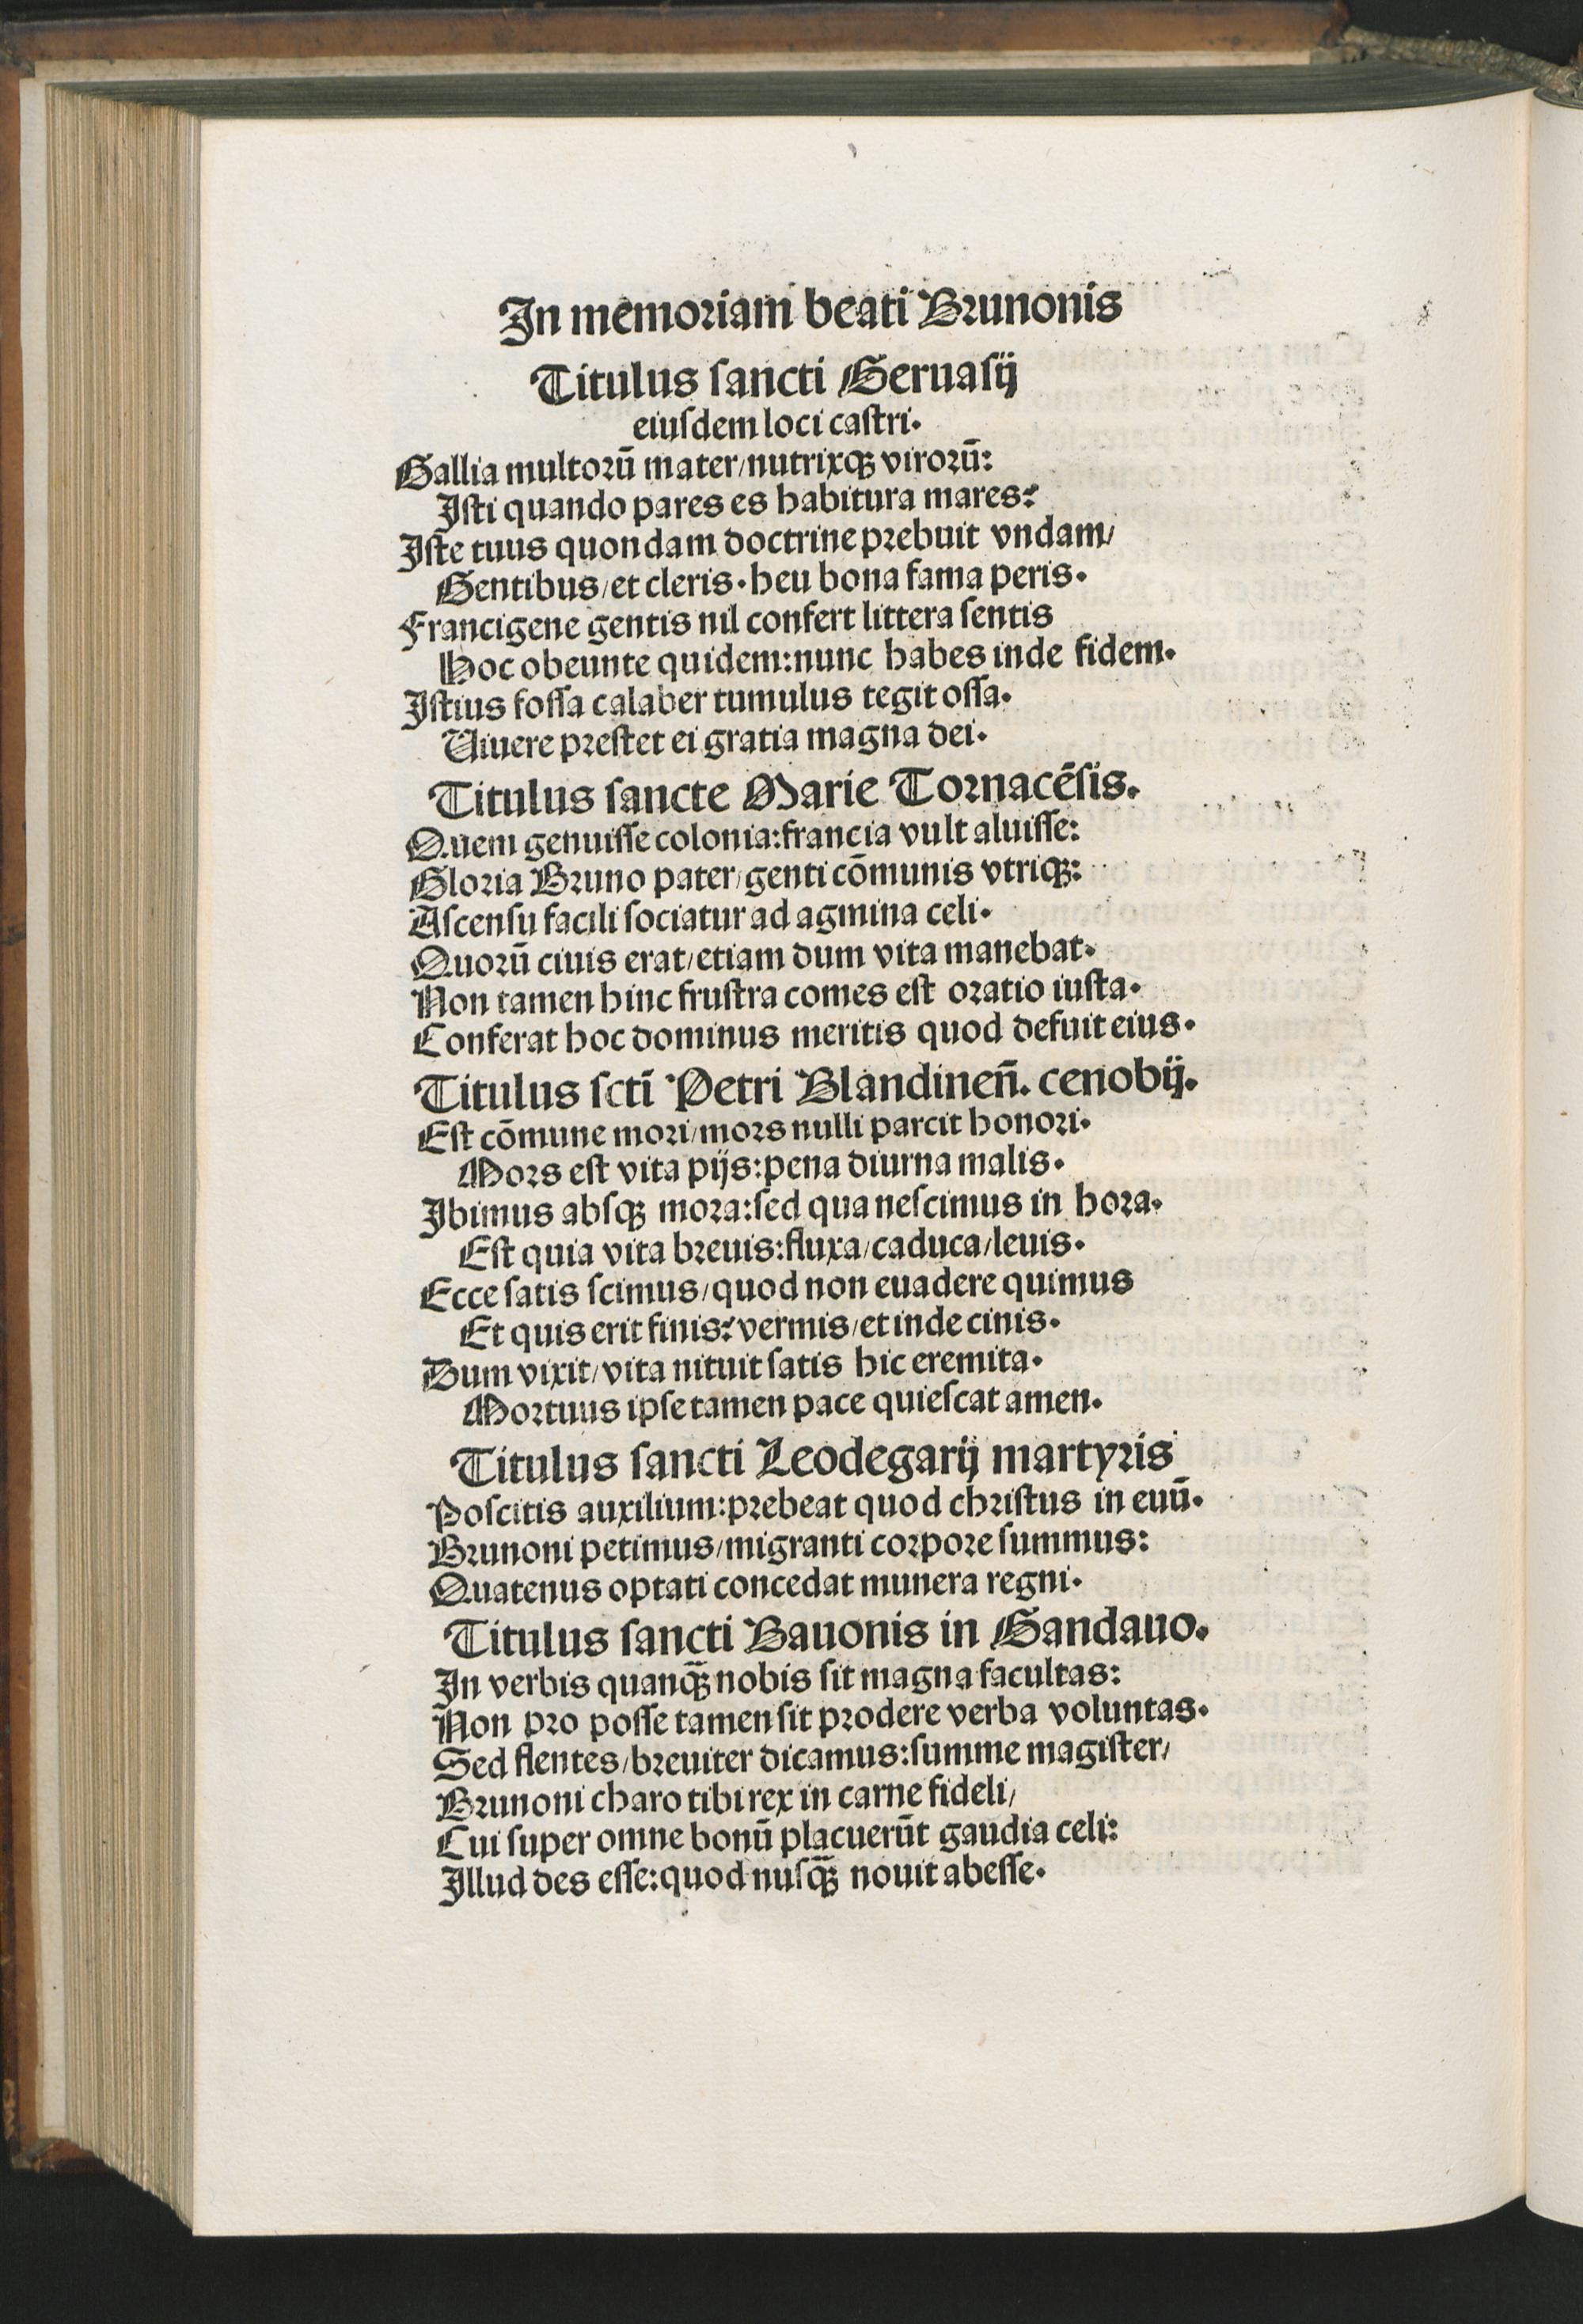 In memoriam beati Brunonis
Titulus ſancti Geruaſij
eiuſdem loci caſtri.
Gallia multorū mater/nutrixqꝫ virorū:
Iſti quando pares es habitura mares?
Iſte tuus quondam doctrine prebuit vndam/
Gentibus/et cleris. heu bona fama peris.
Francigene gentis nil confert littera ſentis
Hoc obeunte quidem: nunc habes inde fidem.
Iſtius foſſa calaber tumulus tegit oſſa.
Uiuere preſtet ei gratia magna dei.
Titulus ſancte Marie Tornacēſis.
Quem genuiſſe colonia: francia vult aluiſſe:
Gloria Bruno pater/genti cōmunis vtriqꝫ:
Aſcenſu facili ſociatur ad agmina celi.
Quorū ciuis erat/etiam dum vita manebat.
Non tamen hinc fruſtra comes eſt oratio iuſta.
Conferat hoc dominus meritis quod defuit eius.
Titulus ſcti̅ Petri Blandinen̄. cenobij.
Eſt cōmune mori/mors nulli parcit honori.
Mors eſt vita pijs: pena diurna malis.
Ibimus abſqꝫ mora: ſed qua neſcimus in hora.
Eſt quia vita breuis: fluxa/caduca/leuis.
Ecce ſatis ſcimus/quod non euadere quimus
Et quis erit finis? vermis/et inde cinis.
Dum vixit/vita nituit ſatis hic eremita.
Mortuus ipſe tamen pace quieſcat amen.
Titulus ſancti Leodegarij martyris
Poſcitis auxilium: prebeat quod chriſtus in euū.
Brunoni petimus/migranti corpore ſummus:
Quatenus optati concedat munera regni.
Titulus ſancti Bauonis in Gandauo.
In verbis quanqꝫ̄ nobis ſit magna facultas:
Non pro poſſe tamen ſit prodere verba voluntas.
Sed flentes/breuiter dicamus: ſumme magiſter/
Brunoni charo tibi rex in carne fideli/
Cui ſuper omne bonū placuerūt gaudia celi:
Illud des eſſe: quod nuſqꝫ̄ nouit abeſſe.